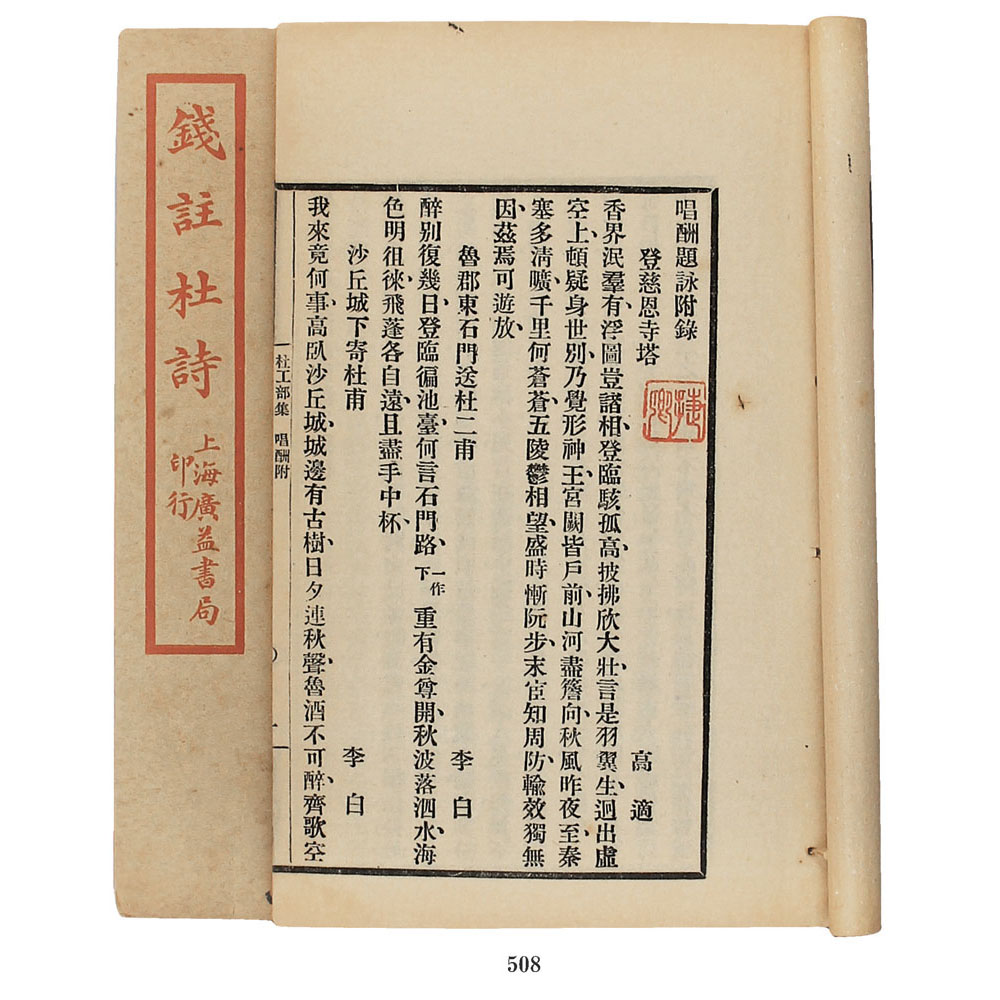 唱酬題詠附錄
登慈恩寺塔 高適
香界泯羣有、浮圖豈諸相、登臨駭孤高、披拂欣大壯、言是羽翼生、迥出虛
空上、頓疑身世別、乃覺形神王、宮闕皆戶前、山河盡簷向、秋風昨夜至、秦
塞多清曠、千里何蒼蒼、五陵鬱相望、盛時慚阮步、末宦知周防、輸效獨無
因、茲焉可遊放、
魯郡東石門送杜二甫 李白
醉別復幾日、登臨徧池臺、何言石門路、一作下 重有金尊開、秋波落泗水、海
色明徂徠、飛蓬各自遠、且盡手中杯、
沙丘城下寄杜甫 李白
我來竟何事、高臥沙丘城、城邊有古樹、日夕連秋聲、魯酒不可醉、齊歌空
杜工部集 唱酬附 一
錢註杜詩
上海廣益書局
印行
508